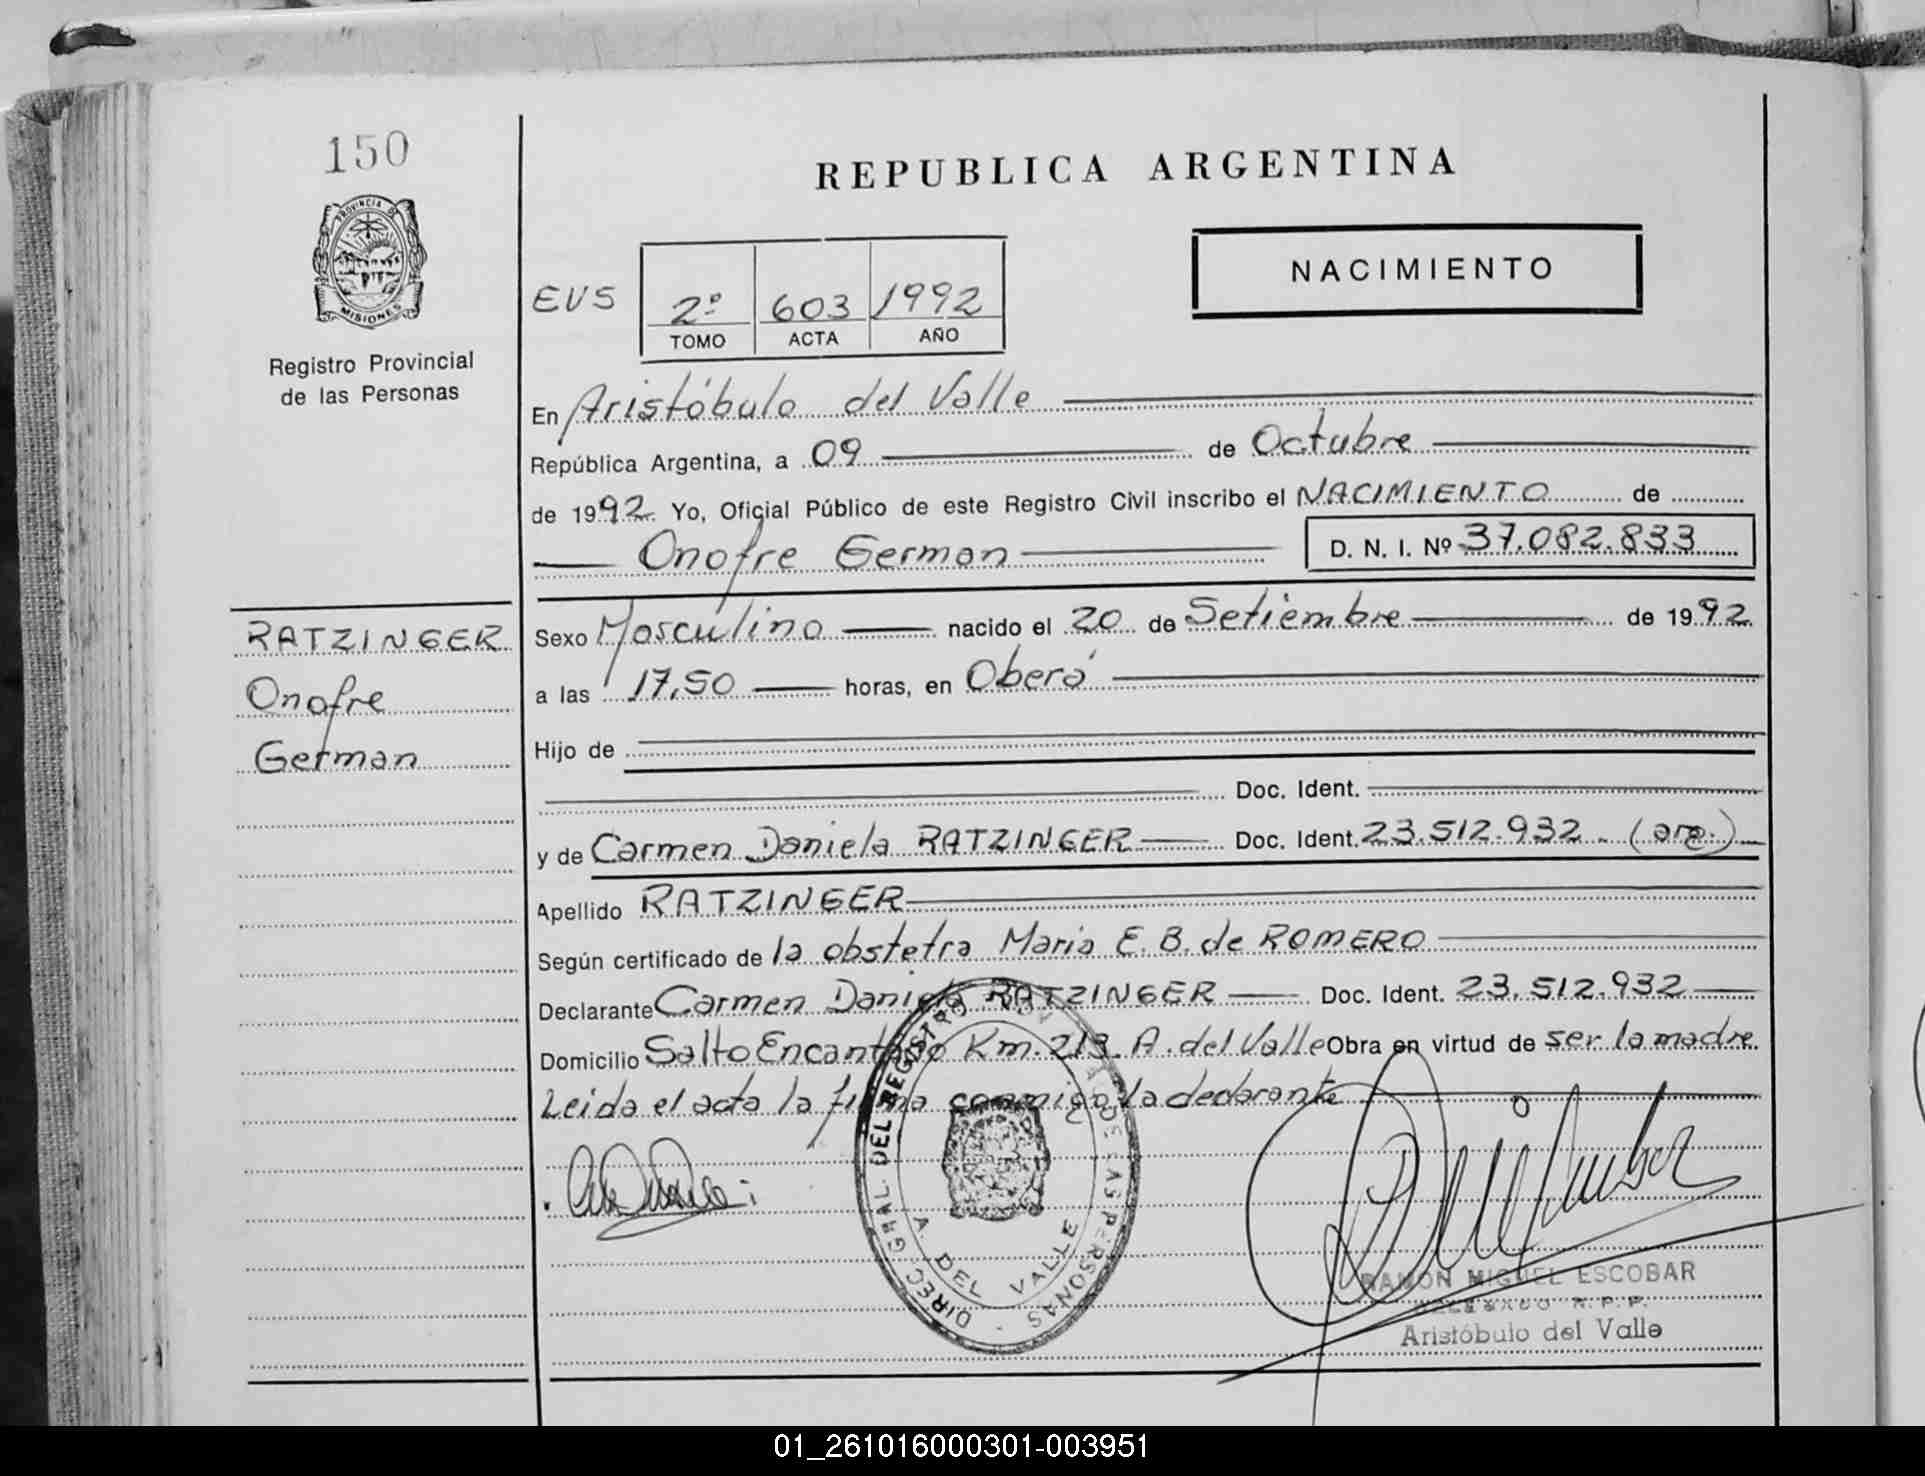 150
PROVINCIA DE
MISIONES
Registro Provincial
de las Personas
RATZINGER
Onofre
German
REPUBLICA ARGENTINA
NACIMIENTO
EVS 2º 603 1992
TOMO ACTA AÑO
En Aristóbulo del Valle
República Argentina, a 09 de Octubre
de 1992. Yo, Oficial Público de este Registro Civil inscribo el NACIMIENTO de
Onofre German D. N. I. Nº 37.082.833
Sexo Masculino nacido el 20 de Setiembre de 1992.
a las 17,50 horas, en Oberá
Hijo de
Doc. Ident.
y de Carmen Daniela RATZINGER Doc. Ident. 23.512.932 - (arg.)
Apellido RATZINGER
Según certificado de la obstetra Maria E. B. de ROMERO
Declarante Carmen Daniela RATZINGER Doc. Ident. 23.512.932
Domicilio Salto Encantado Km. 213. A. del Valle Obra en virtud de ser la madre.
Leida el acta la firma conmigo la declarante
DIREC. GRAL. DEL REGISTRO DE LAS PERSONAS -
A. DEL VALLE
RAMON MIGUEL ESCOBAR
R. P. P.
Aristóbulo del Valle
01_261016000301-003951